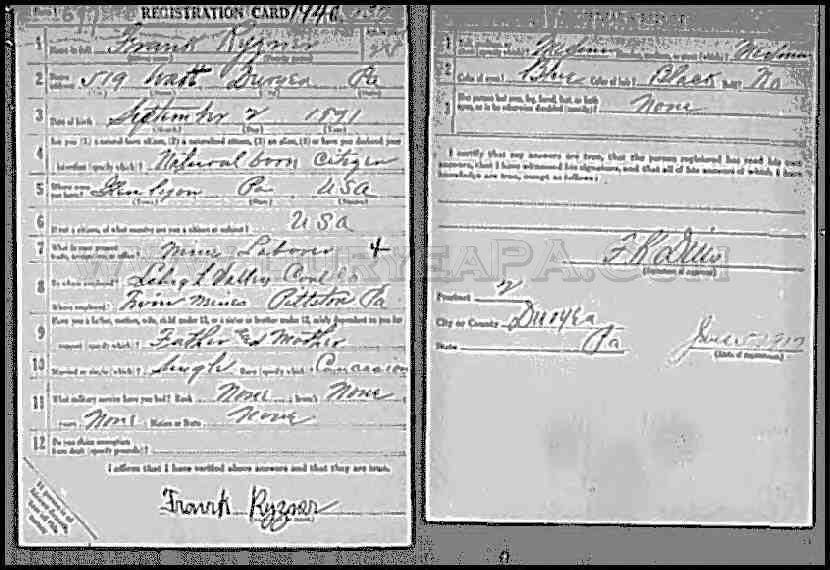 REGISTRATION CARD 1946
1 Name in full Frank Ryzner
2 Home address 519 Watt Duryea Pa
3 Date of birth September 2
4 Natural born citizen
5 Where were you born? Glen Lyon Pa USA
6 If not a citizen, of what country are you a citizen or subject? USA
7 What is your present trade, occupation, or office? Mine Laborer 4
8 By whom employed? Lehigh Valley Coal Co
Where employed? Twin Mines Pittston Pa
9 Have you a father, mother, wife, child under 12, or a sister or brother under 12, solely dependent on you for
support (specify which)? Father and Mother
10 Married or single (which)? Single Race (specify which)? Caucasian
11 What military service have you had? Rank None ; branch None
years None ; Nation or State None
12 Do you claim exemption
from draft (specify grounds)?
I affirm that I have verified above answers and that they are true.
Frank Ryzner
1 Medium Medium
2 Color of eyes? Blue Color of hair? Black Bald? No
3 Has person lost arm, leg, hand, foot, or both
eyes, or is he otherwise disabled (specify)? None
I certify that my answers are true, that the person registered has read his own
answers, that I have witnessed his signature, and that all of his answers of which I have
knowledge are true, except as follows:
(Signature of registrar)
Precinct 2
City or County Duryea
State Pa June 5 1917
(Date of registration)
WWW.DURYEAPA.COM